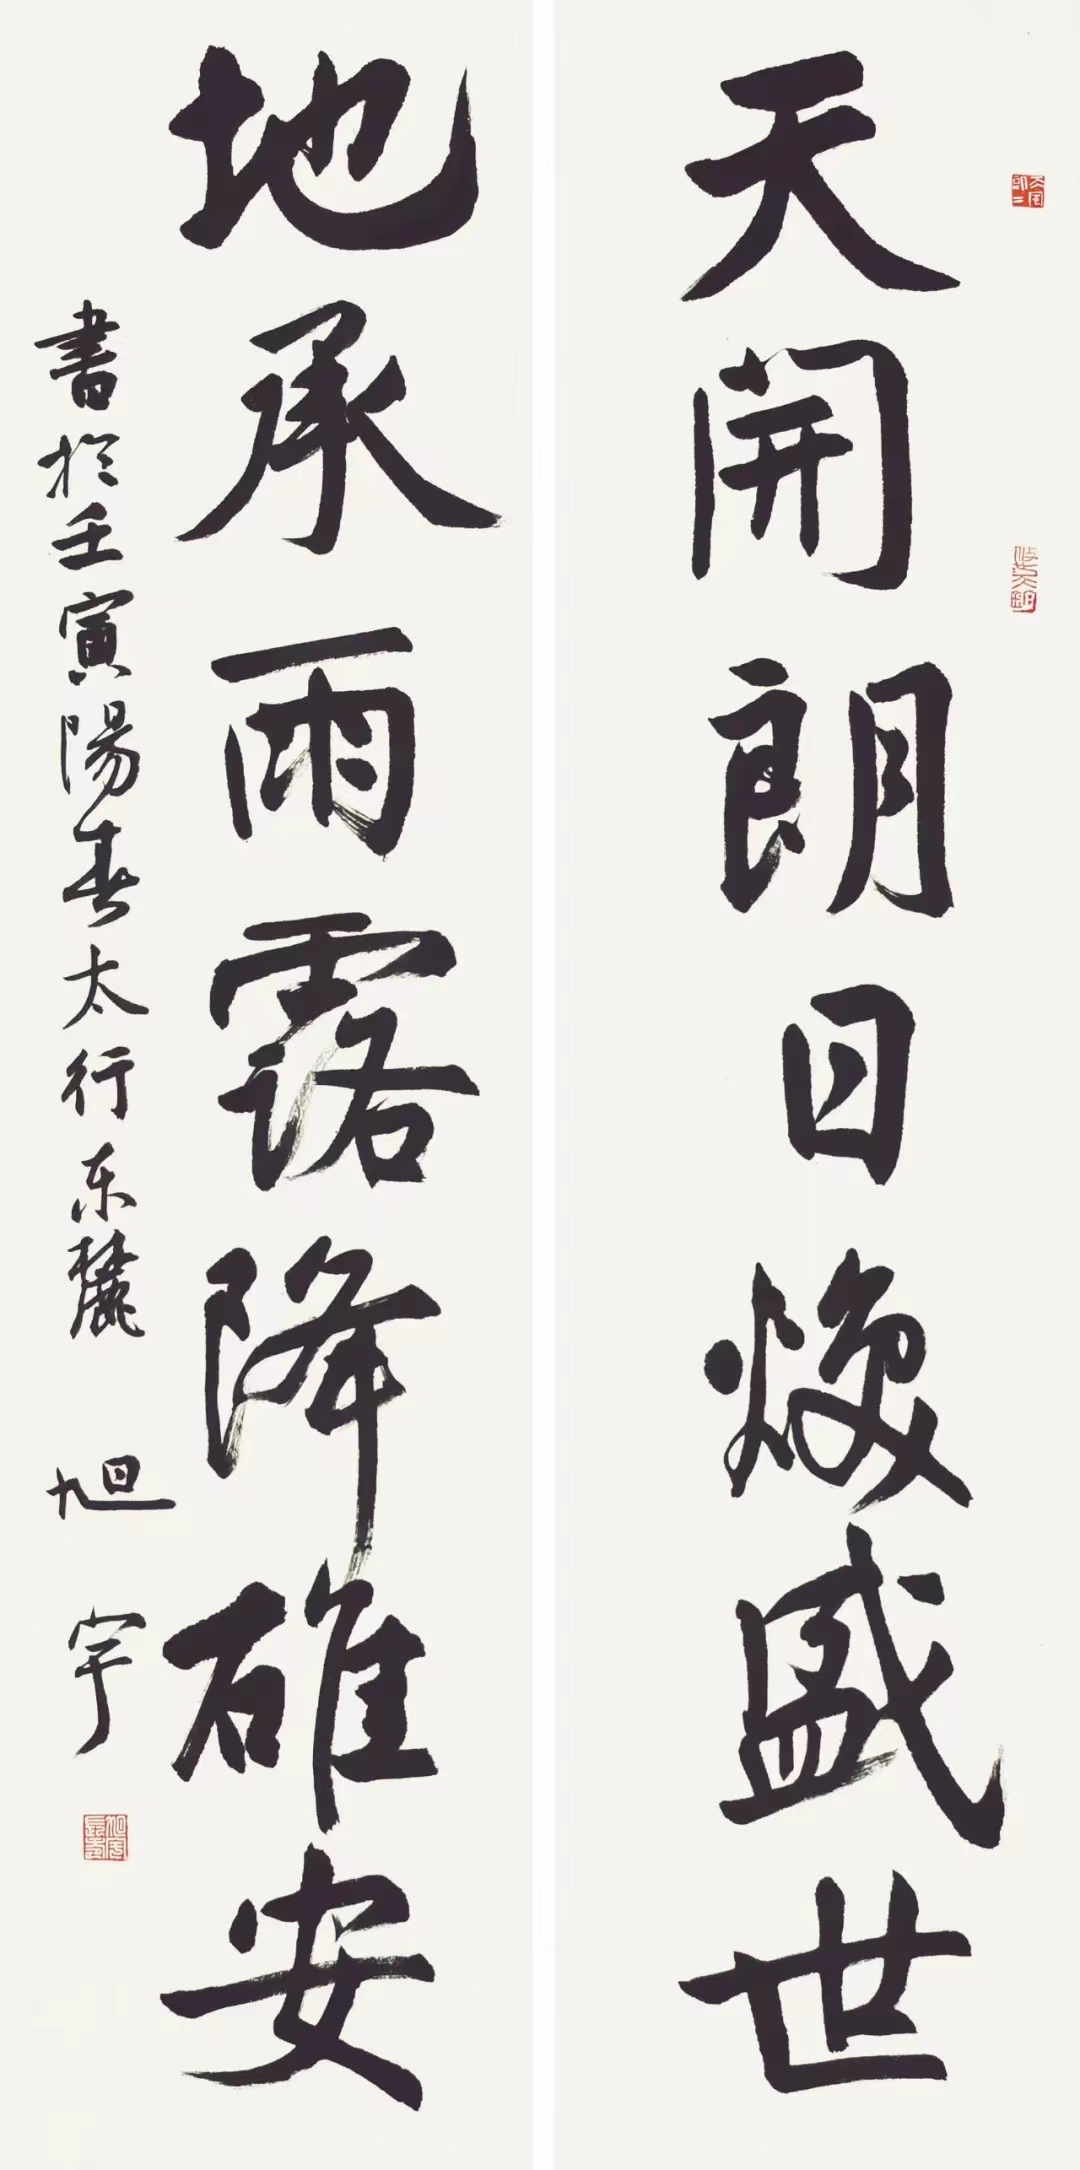 天開朗日煥盛世
地承雨露降雄安
書於壬寅陽春太行东麓 旭宇